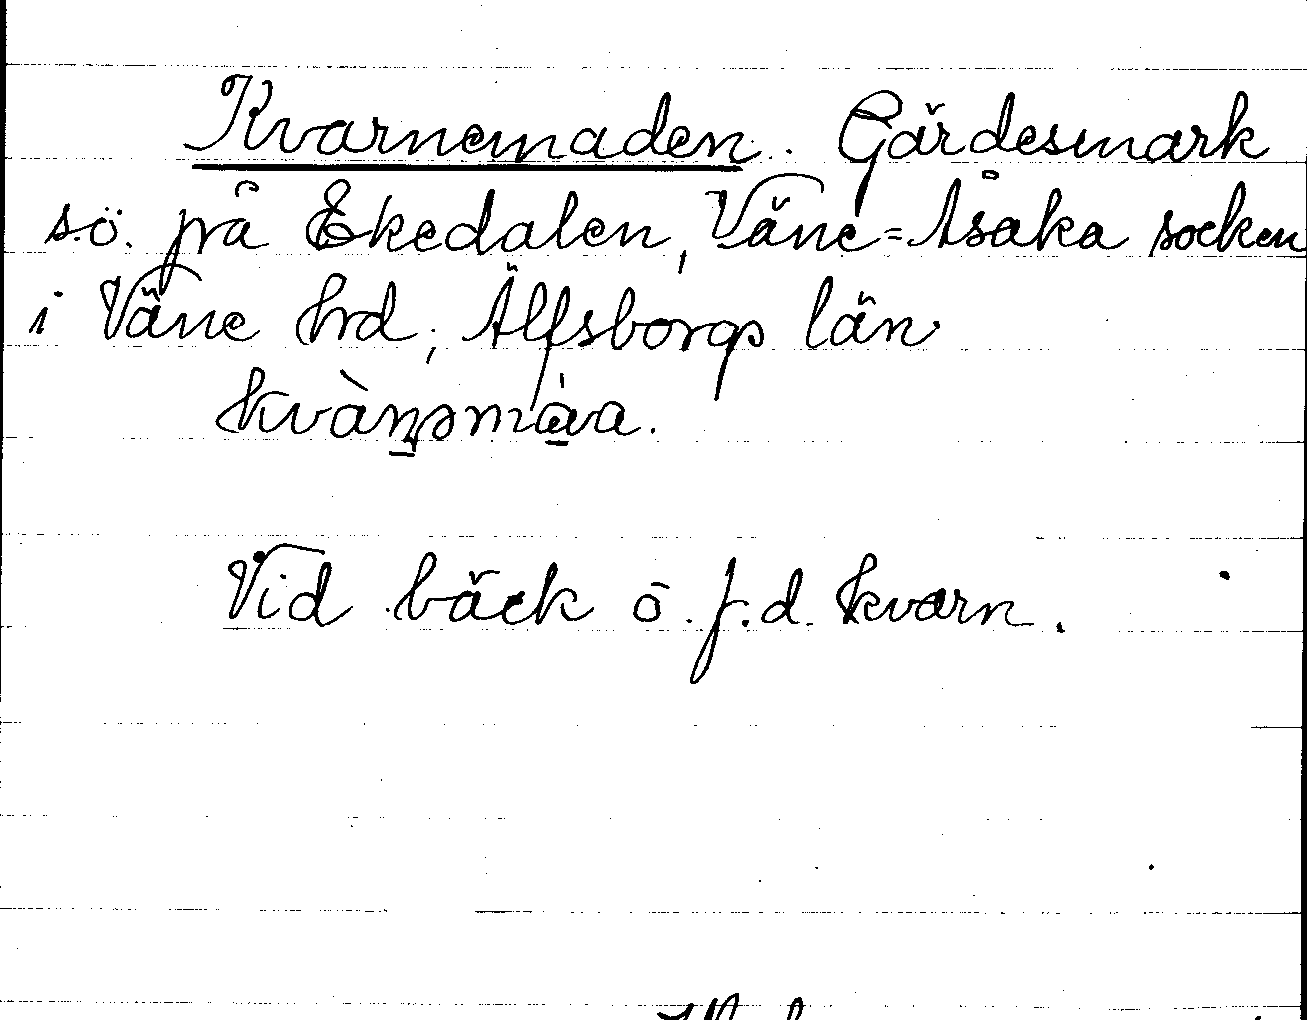 Kvarnemaden. Gärdesmark
sö. på Ekedalen, Väne=Åsaka socken
i Väne hrd, Älfsborgs län
kvàṉəmàva.
Vid bäck ö. f.d. kvarn.